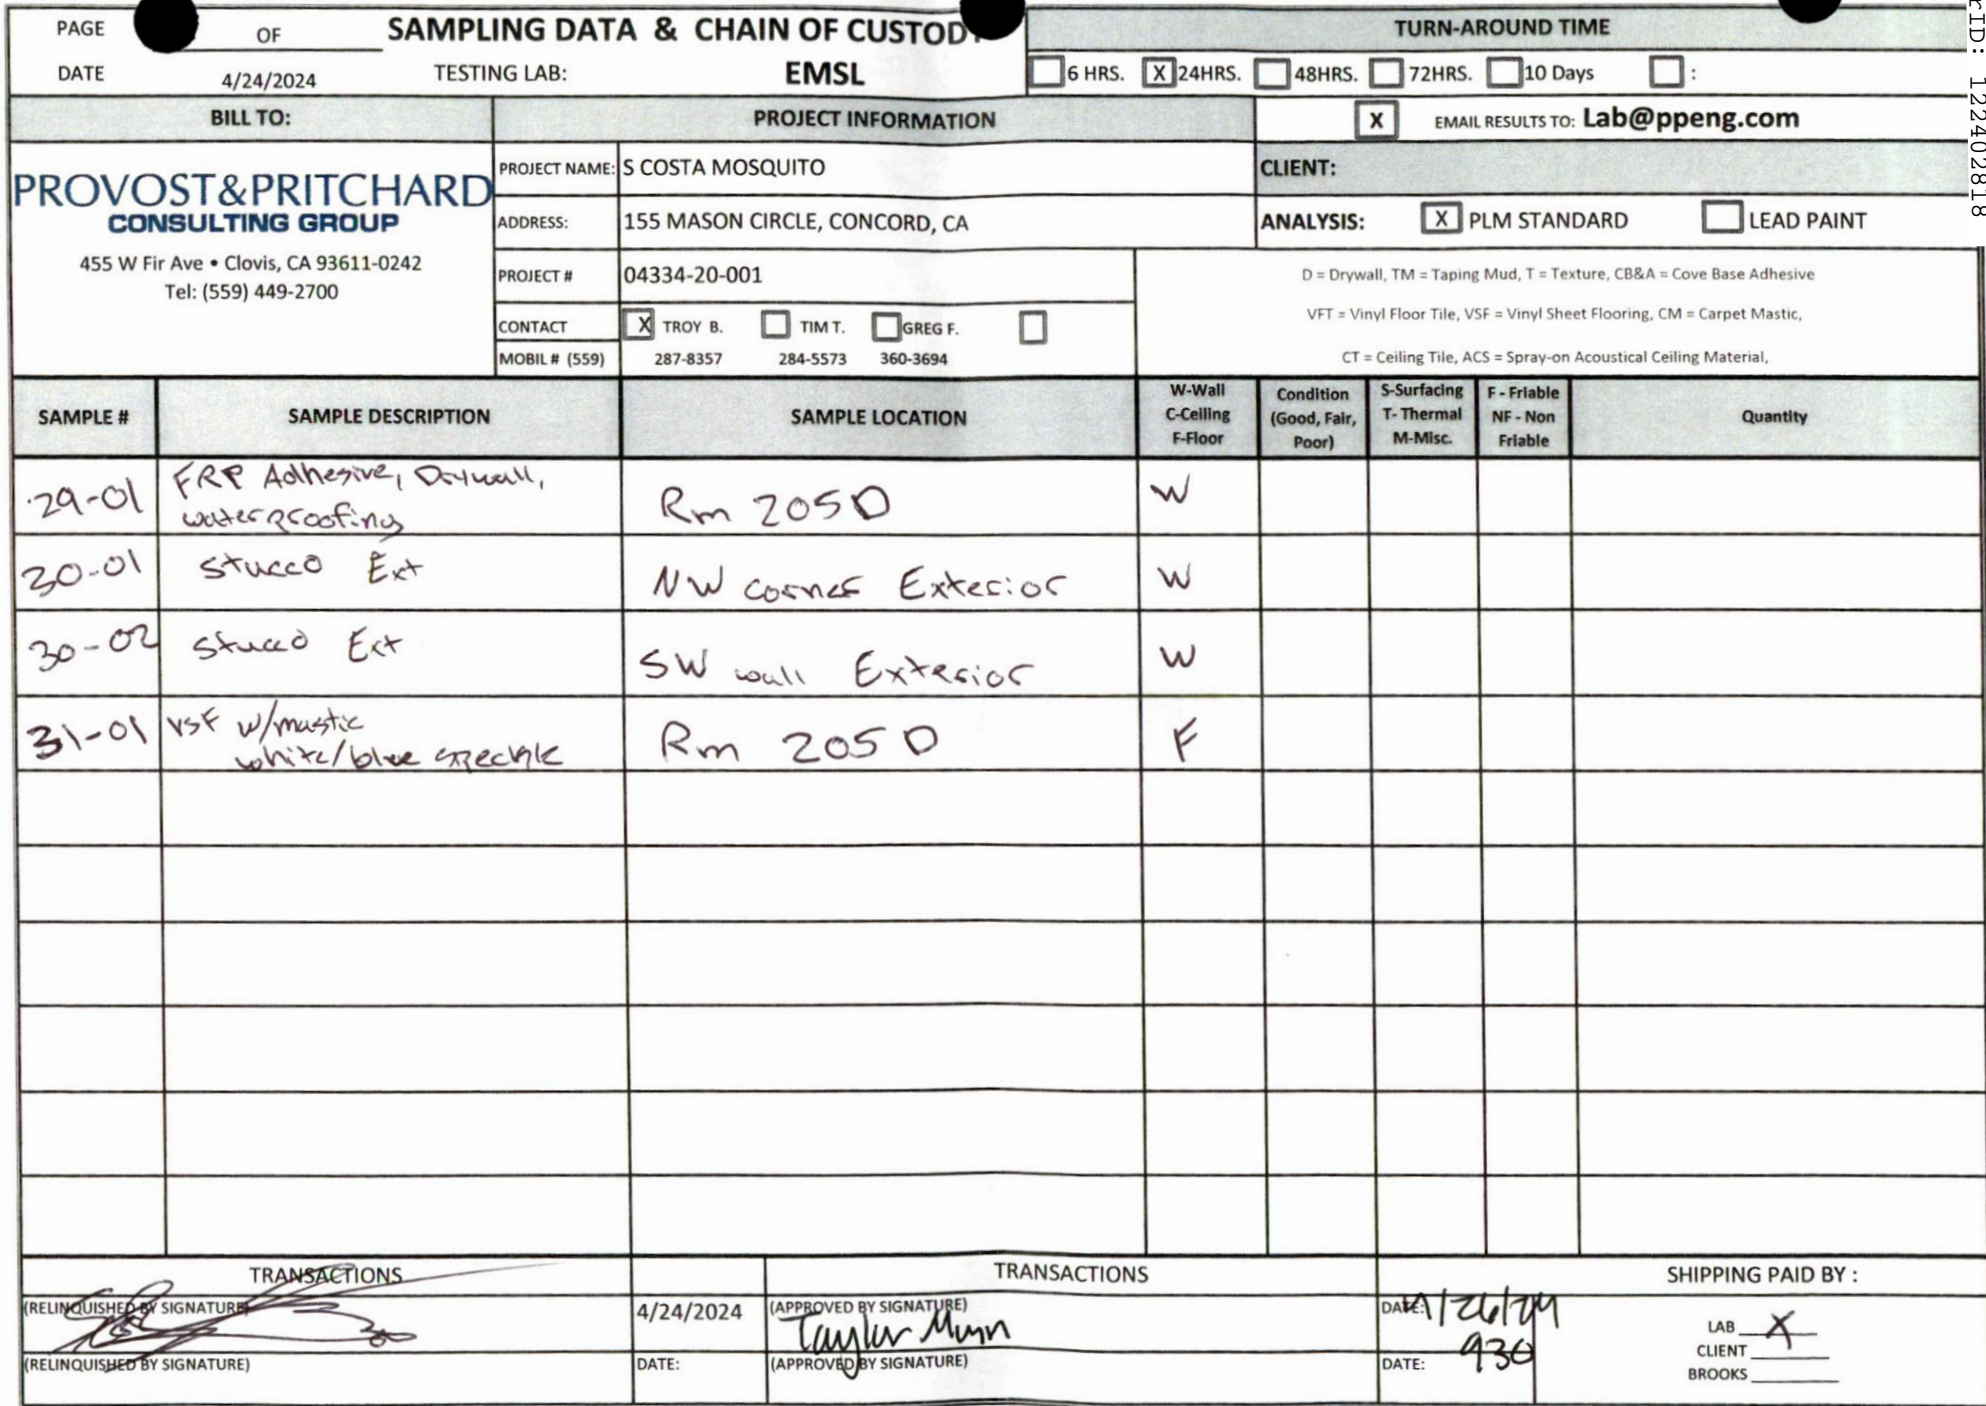 PAGE OF SAMPLING DATA & CHAIN OF CUSTODY
DATE 4/24/2024 TESTING LAB: EMSL
TURN-AROUND TIME
6 HRS. X 24HRS. 48HRS. 72HRS. 10 Days :
rID: 122402818
BILL TO:
PROVOST&PRITCHARD
CONSULTING GROUP
455 W Fir Ave • Clovis, CA 93611-0242
Tel: (559) 449-2700
PROJECT INFORMATION
PROJECT NAME: S COSTA MOSQUITO
ADDRESS: 155 MASON CIRCLE, CONCORD, CA
PROJECT # 04334-20-001
CONTACT X TROY B. TIM T. GREG F.
MOBIL # (559) 287-8357 284-5573 360-3694
X EMAIL RESULTS TO: Lab@ppeng.com
CLIENT:
ANALYSIS: X PLM STANDARD LEAD PAINT
D = Drywall, TM = Taping Mud, T = Texture, CB&A = Cove Base Adhesive
VFT = Vinyl Floor Tile, VSF = Vinyl Sheet Flooring, CM = Carpet Mastic,
CT = Ceiling Tile, ACS = Spray-on Acoustical Ceiling Material,
SAMPLE #
SAMPLE DESCRIPTION
SAMPLE LOCATION
W-Wall
C-Ceiling
F-Floor
Condition
(Good, Fair,
Poor)
S-Surfacing
T- Thermal
M-Misc.
F - Friable
NF - Non
Friable
Quantity
29-01 FRP Adhesive, Drywall,
waterproofing Rm 205D W
30-01 Stucco Ext NW corner Exterior W
30-02 Stucco Ext SW wall Exterior W
31-01 VSF w/mastic
white/blue speckle Rm 205D F
TRANSACTIONS
(RELINQUISHED BY SIGNATURE) 4/24/2024
(RELINQUISHED BY SIGNATURE) DATE:
TRANSACTIONS
(APPROVED BY SIGNATURE) DATE: 4/26/24
Taylor Munn
(APPROVED BY SIGNATURE) DATE: 930
SHIPPING PAID BY :
LAB X
CLIENT
BROOKS